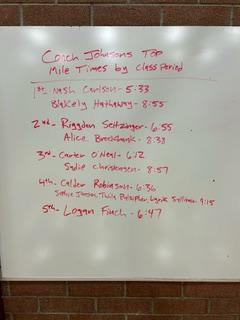 Coach Johnsons Top
Mile Times by Class Period
1st Nash Carlson - 5:33
Blakely Hathaway - 8:55
2nd - Riggdon Seitzinger - 6:55
Alice Brockbank - 8:38
3rd - Carter O'Neal - 6:12
Sadie Christensen - 8:57
4th - Calder Robinson - 6:36
Sophie Jensen, Pulsipher, Lyrik 9:15
5th - Logan Finch - 6:47